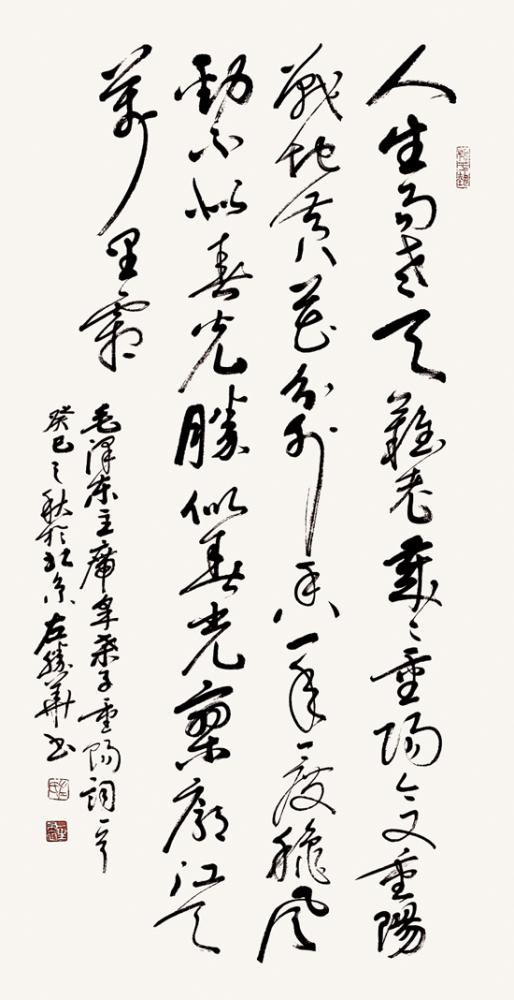 人生易老天難老歲〻重陽今又重陽
戰地黃花分外香一年一度穐風
勁不似春光勝似春光寥廓江天
萬里霜
毛澤东主席采桑子重陽詞一首
癸巳之秋於北京左勝華書